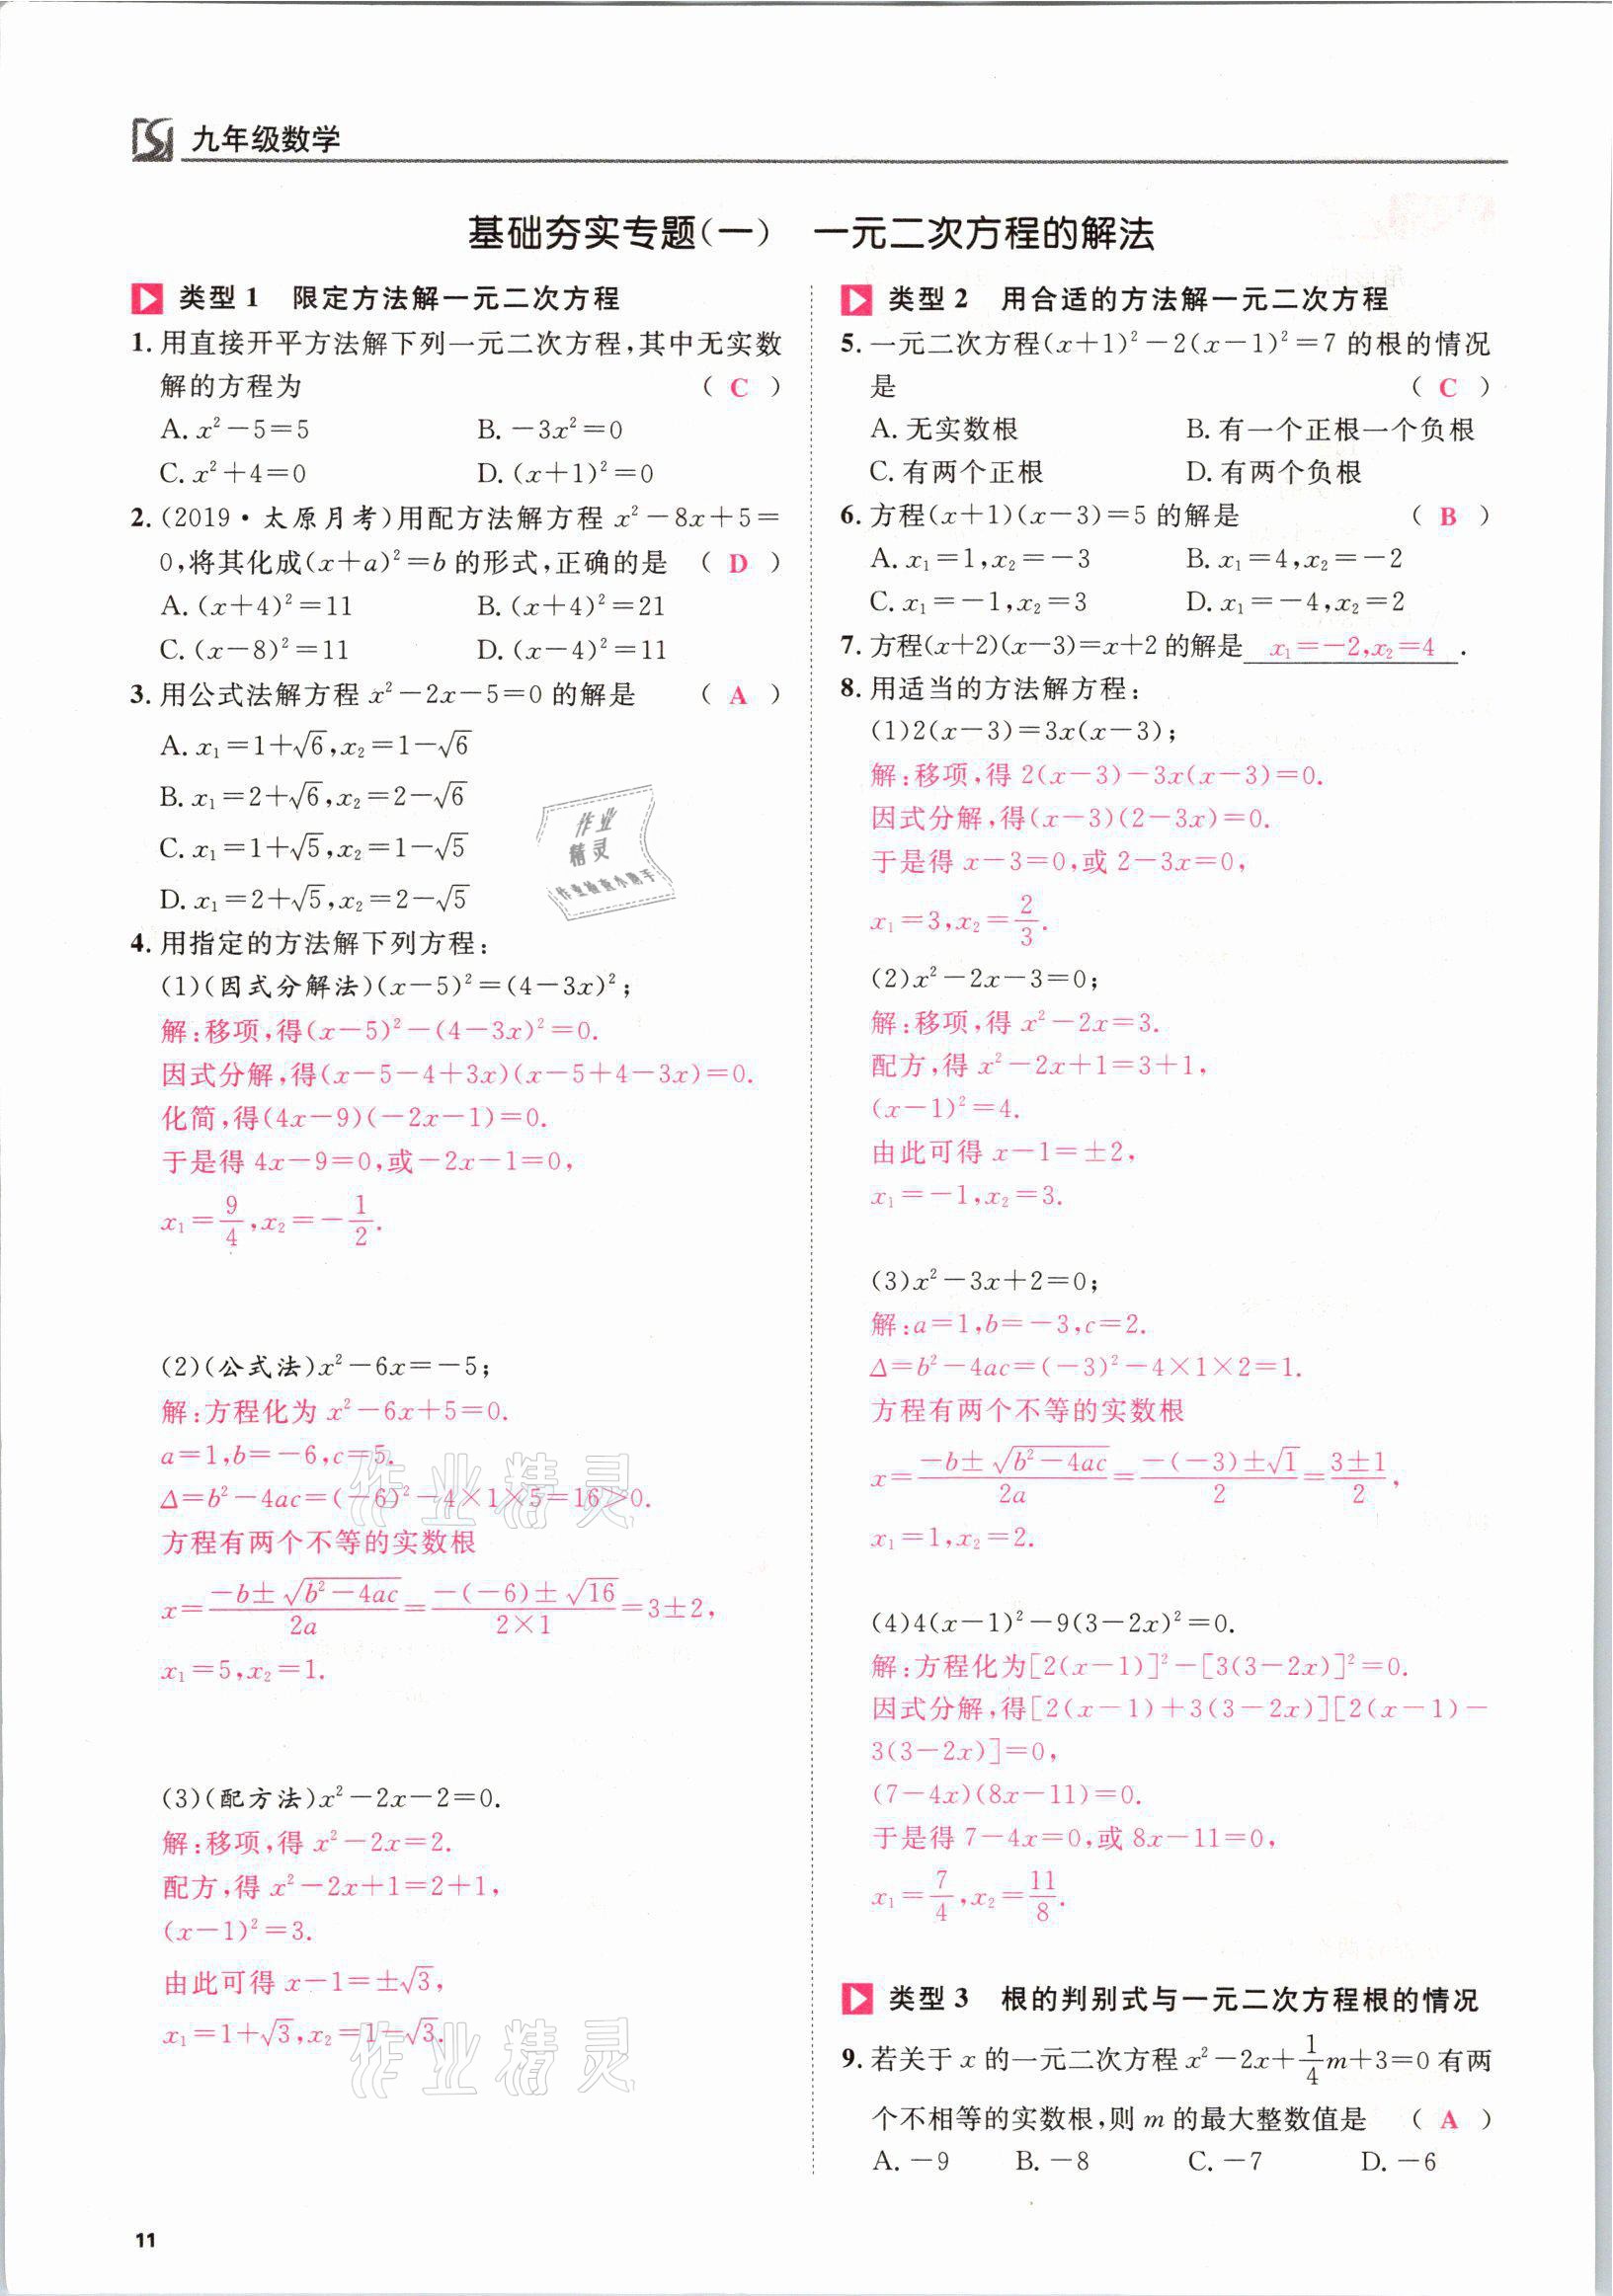 九年级数学
基础夯实专题(一) 一元二次方程的解法
类型1 限定方法解一元二次方程
1. 用直接开平方法解下列一元二次方程,其中无实数
解的方程为 ( C )
A. x²-5=5 B. -3x²=0
C. x²+4=0 D. (x+1)²=0
2. (2019·太原月考)用配方法解方程 x²-8x+5=
0,将其化成(x+a)²=b 的形式,正确的是 ( D )
A. (x+4)²=11 B. (x+4)²=21
C. (x-8)²=11 D. (x-4)²=11
3. 用公式法解方程 x²-2x-5=0 的解是 ( A )
A. x₁=1+√6,x₂=1-√6
B. x₁=2+√6,x₂=2-√6
C. x₁=1+√5,x₂=1-√5
D. x₁=2+√5,x₂=2-√5
作业
精灵
作业检查小助手
4. 用指定的方法解下列方程:
(1)(因式分解法)(x-5)²=(4-3x)²;
解:移项,得(x-5)²-(4-3x)²=0.
因式分解,得(x-5-4+3x)(x-5+4-3x)=0.
化简,得(4x-9)(-2x-1)=0.
于是得 4x-9=0,或-2x-1=0,
x₁=9/4,x₂=-1/2.
(2)(公式法)x²-6x=-5;
解:方程化为 x²-6x+5=0.
a=1,b=-6,c=5.
Δ=b²-4ac=(-6)²-4×1×5=16>0.
作业精灵
方程有两个不等的实数根
x=(-b±√(b²-4ac))/2a=(-(-6)±√16)/(2×1)=3±2,
x₁=5,x₂=1.
(3)(配方法)x²-2x-2=0.
解:移项,得 x²-2x=2.
配方,得 x²-2x+1=2+1,
(x-1)²=3.
由此可得 x-1=±√3,
x₁=1+√3,x₂=1-√3.
作业精灵
类型2 用合适的方法解一元二次方程
5. 一元二次方程(x+1)²-2(x-1)²=7 的根的情况
是 ( C )
A. 无实数根 B. 有一个正根一个负根
C. 有两个正根 D. 有两个负根
6. 方程(x+1)(x-3)=5 的解是 ( B )
A. x₁=1,x₂=-3 B. x₁=4,x₂=-2
C. x₁=-1,x₂=3 D. x₁=-4,x₂=2
7. 方程(x+2)(x-3)=x+2 的解是 x₁=-2,x₂=4 .
8. 用适当的方法解方程:
(1)2(x-3)=3x(x-3);
解:移项,得 2(x-3)-3x(x-3)=0.
因式分解,得(x-3)(2-3x)=0.
于是得 x-3=0,或 2-3x=0,
x₁=3,x₂=2/3.
(2)x²-2x-3=0;
解:移项,得 x²-2x=3.
配方,得 x²-2x+1=3+1,
(x-1)²=4.
由此可得 x-1=±2,
x₁=-1,x₂=3.
(3)x²-3x+2=0;
解:a=1,b=-3,c=2.
Δ=b²-4ac=(-3)²-4×1×2=1.
方程有两个不等的实数根
x=(-b±√(b²-4ac))/2a=(-(-3)±√1)/2=(3±1)/2,
x₁=1,x₂=2.
(4)4(x-1)²-9(3-2x)²=0.
解:方程化为[2(x-1)]²-[3(3-2x)]²=0.
因式分解,得[2(x-1)+3(3-2x)][2(x-1)-
3(3-2x)]=0,
(7-4x)(8x-11)=0.
于是得 7-4x=0,或 8x-11=0,
x₁=7/4,x₂=11/8.
类型3 根的判别式与一元二次方程根的情况
9. 若关于 x 的一元二次方程 x²-2x+1/4m+3=0 有两
个不相等的实数根,则 m 的最大整数值是 ( A )
A. -9 B. -8 C. -7 D. -6
11